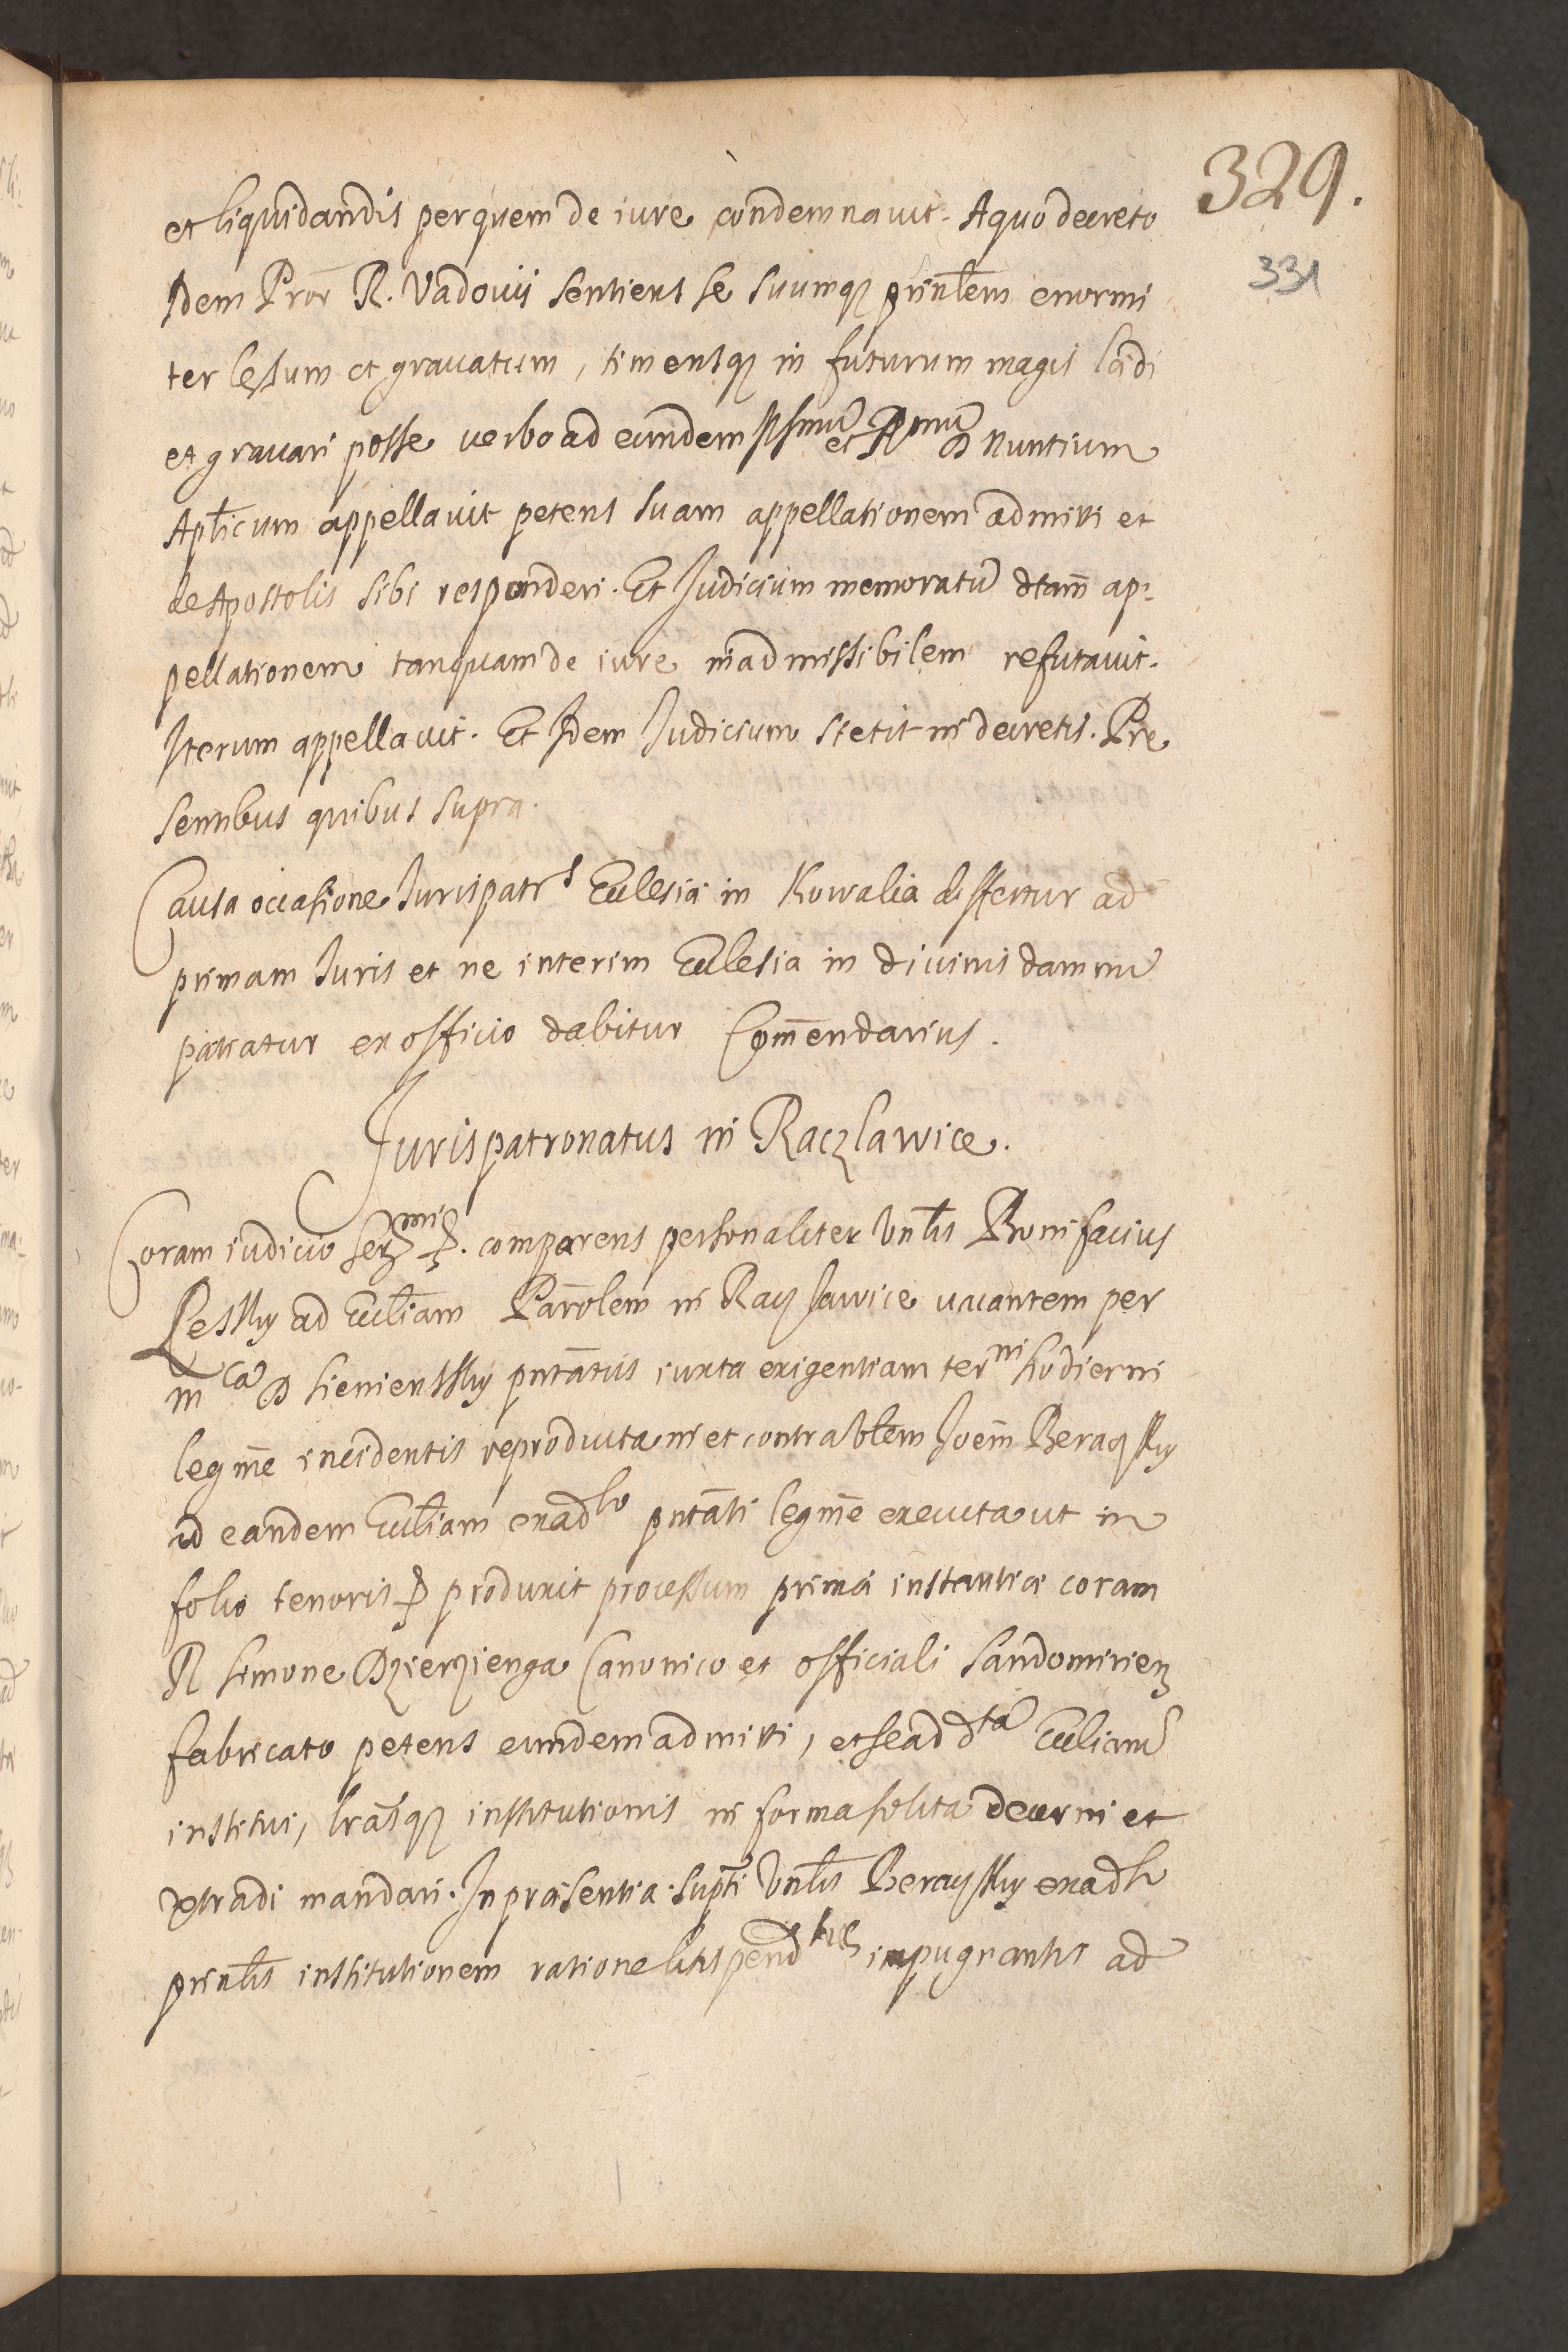 329.
331
et liquidandis per quem de iure condemnavit. A quo decreto
Idem Pror R. Vadovii sentiens se suumq prinlem enormi
ter lesum et gravatum, timensq in futurum magis lædi
et gravari posse verbo ad eundem Illmu et Rmu D Nuntium
Aplicum appellavit petens suam appellationem admitti et
de Apostolis sibi responderi. Et Judicium memoratu dtam ap-
pellationem tanquam de iure inadmissibilem refutavit.
Iterum appellavit. Et Idem Judicium stetit in decretis. Pre
sentibus quibus supra.
Causa occasione Jurispatrs Ecclesiæ in Kowalia differtur ad
primam Juris et ne interim Ecclesia in divinis damnu
patiatur ex officio dabitur Comendarius.
Jurispatronatus in Raczlawice.
Coram iudicio comparens personaliter Vnlis Bonifacius
Lessky ad Eccliam Parolem in Raczlawice vacantem per
Mcu D Sienienssky pntatus iuxta exigentiam terni hodierni
legme incidentis reproducta in et contra Vblem Joem Beraczsky
ad eandem Eccliam ex adso pntati legme executa ut in
folio tenoris produxit processum primæ instantiæ coram
R Simone Dzierzienga Canonico et officiali Sandomirien
fabricato petens eundem admitti, et se ad dta Eccliam
institui, lrasq institutionis in forma solita decerni et
extradi mandari. In præsentia supti Vnlis Beraczsky ex adso
prinlis institutionem ratione litispendtis impugnantis ad